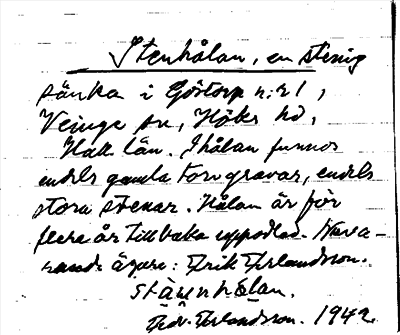 Stenhålan, en stenig
sänka i Göstorp n:r 1,
Veinge sn, Höks hd,
Hall. län. I hålan funnos
endels gamla torvgravar, endels
stora stenar. Hålan är för
flera år tillbaka uppodlad. Nuva-
rande ägare: Erik Erlandsson.
stänhålan.
Erlandsson. 1942.